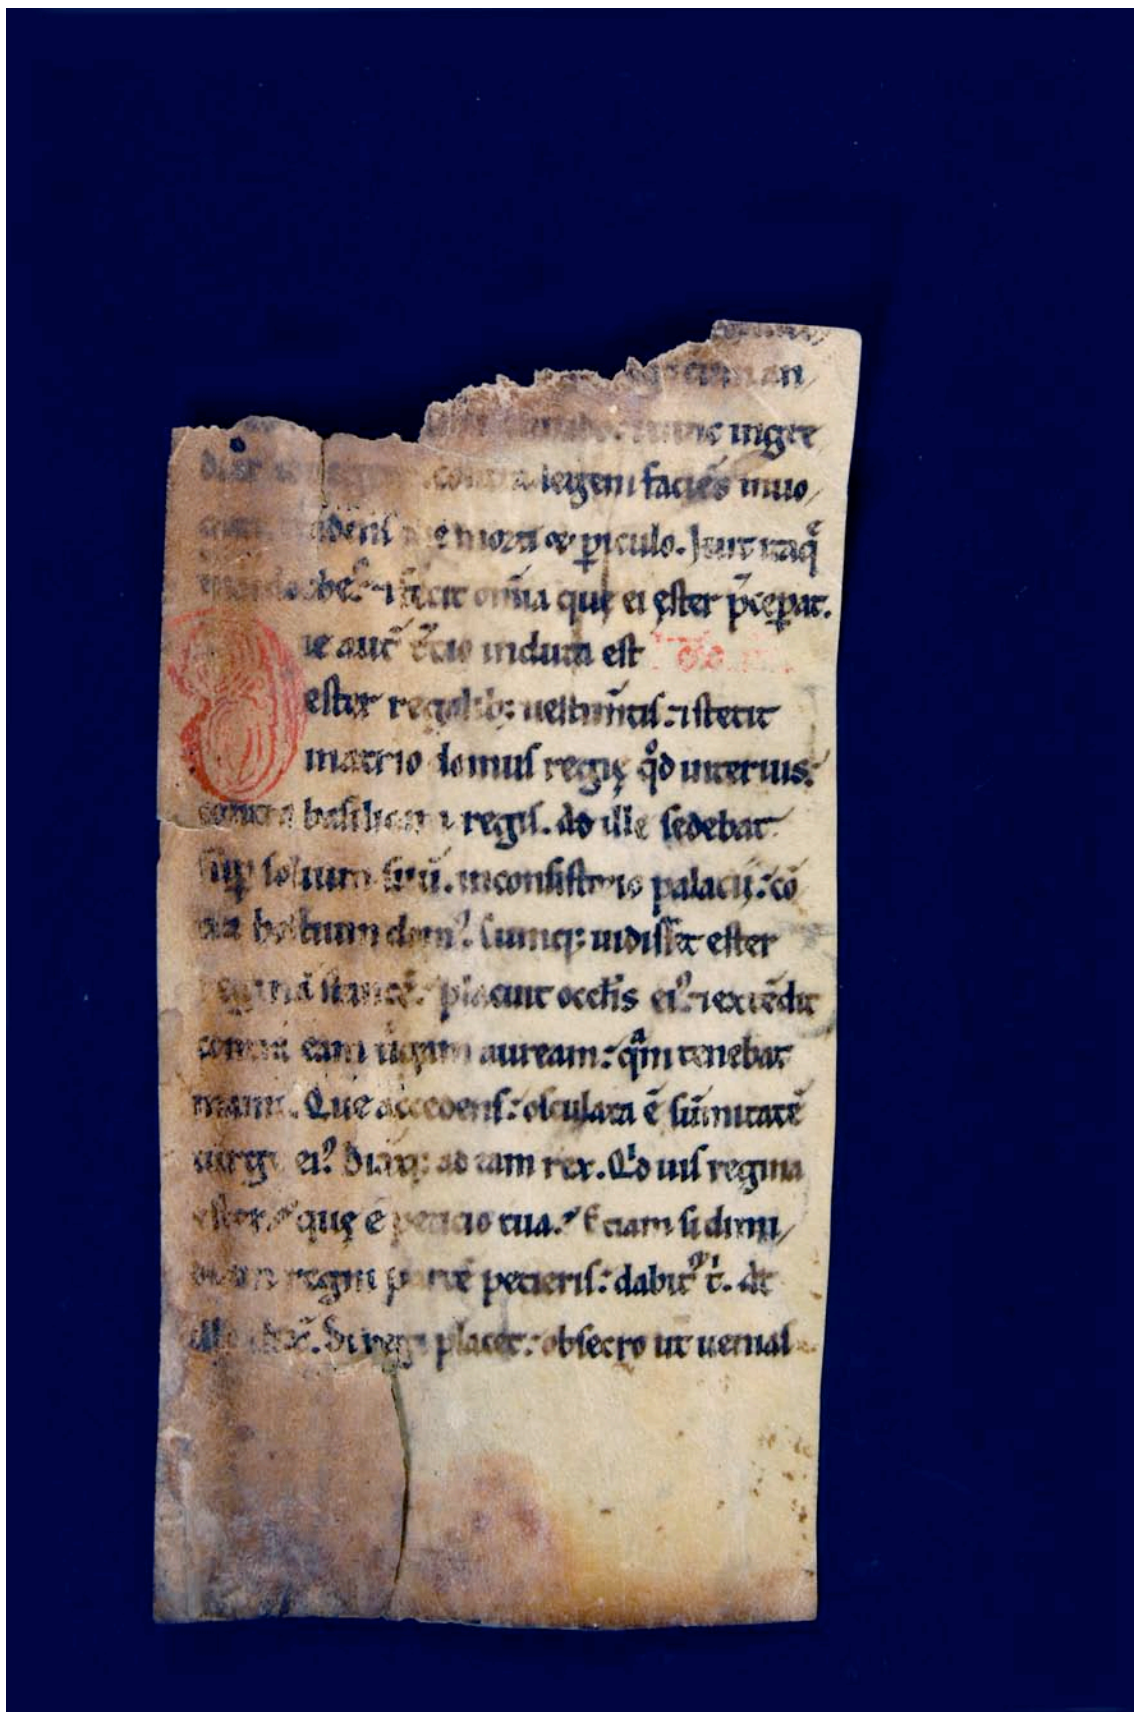 cum an
tunc ingre
contra legem faciens inuo
tradens me morti & ꝑiculo. Iuit itaq̄
mardocheꝰ ⁊ fecit om̄ia que ei ęster p̄ceꝑat.
ie aut̄ t̄cio induta est
ester regalib; uestim̄tis ⁊ stetit
in atrio domus regię qͦd interius
contra basilicam regis. At ille sedebat
sup̱ solium suū. in consistorio palacij cō
tra hostium domꝰ. Cumq; uidisset ester
reginā stantē placuit occl̄is eiꝰ ⁊ extēdit
contra eam uirgam auream qᵃm tenebat
manu. Que accedens osculata ē sūmitatē
uirgę eiꝰ. Dixitq; ad eam rex. Qͥd uis regina
ester que ē peticio tua. Etiam si dimi
diam regni partē pecieris dabit᷑ tͥ. At
illa Si regi placet obsecro ut uenias